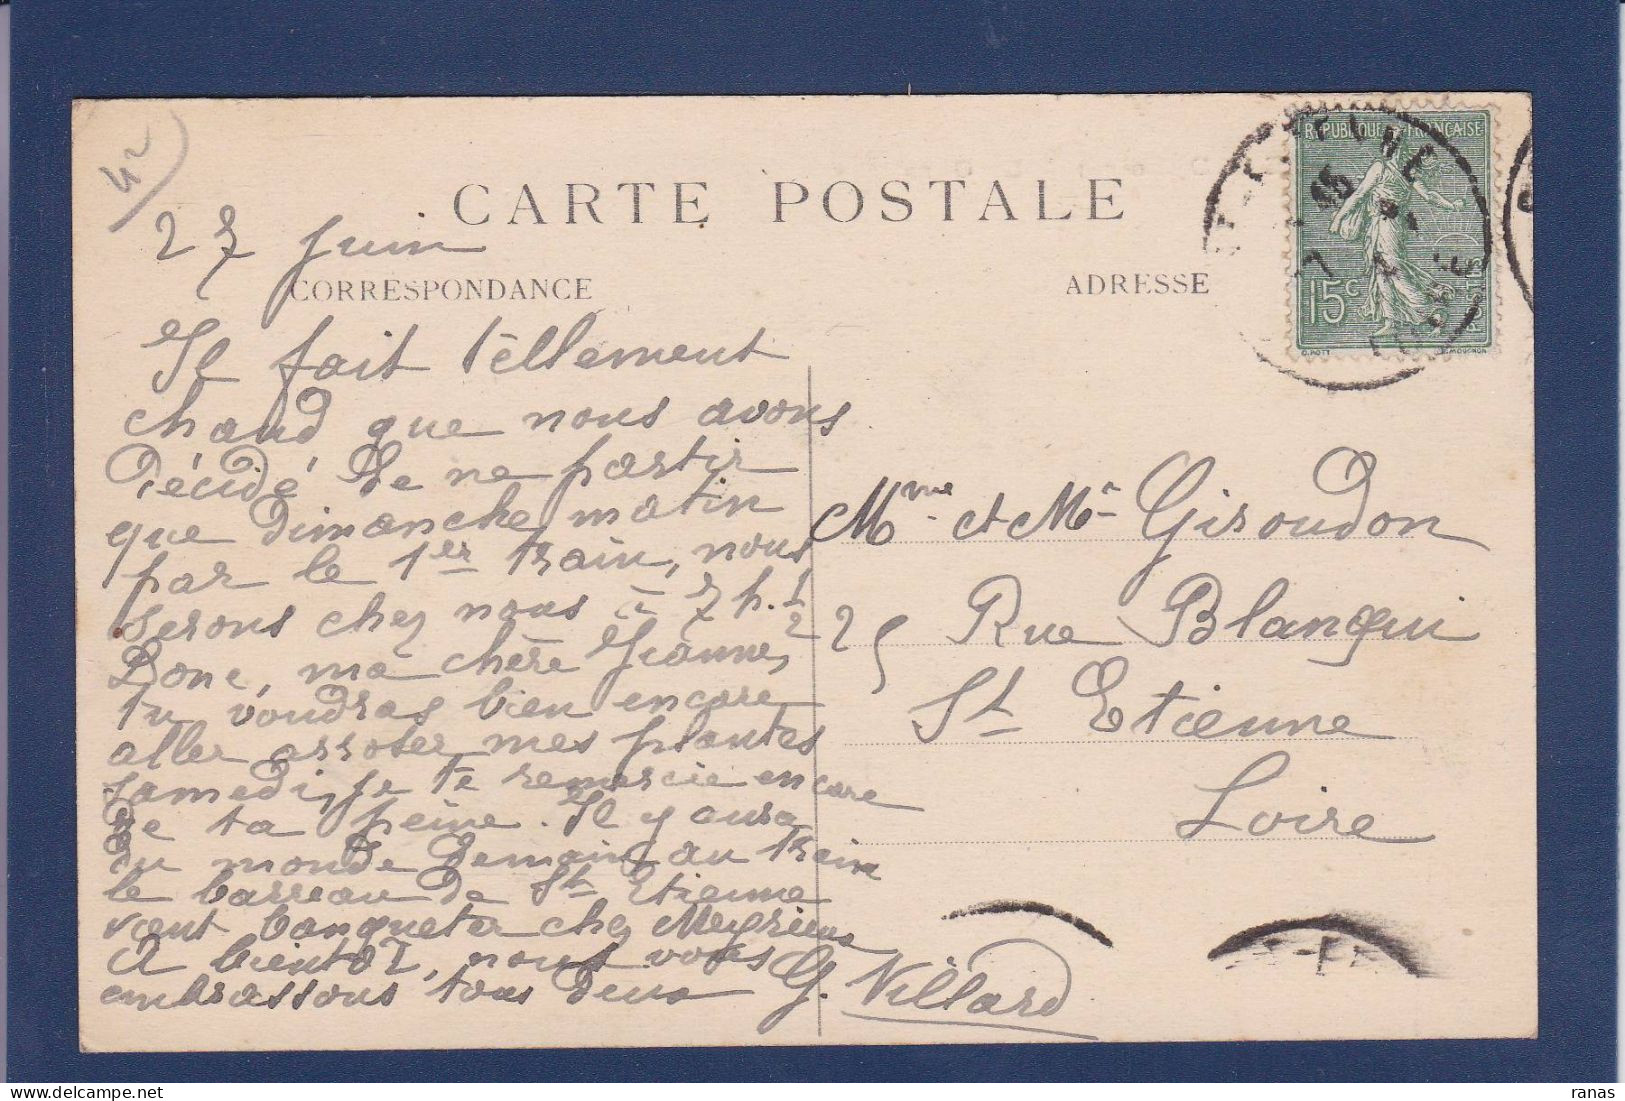 42
CARTE POSTALE
27 Juin
CORRESPONDANCE
ADRESSE
REPUBLIQUE FRANÇAISE
15c
POSTES
O.ROTY
E.MOUCHON
Il fait tèllement
chaud que nous avons
décidé de ne partir
que dimanche matin
par le 1er train, nous
serons chez nous à 7 h. 1/2
Donc, ma chère
tu voudras bien encore
aller arroser mes plantes
samedi, je te remercie encore
de ta peine. Il y aura
du monde demain au train
le barreau de St Etienne
vient banqueter chez
A bientôt, nous vous
embrassons tous deux G. Villard
Mme et Mr Giroudon
25 Rue Blanqui
St Etienne
Loire
ranas